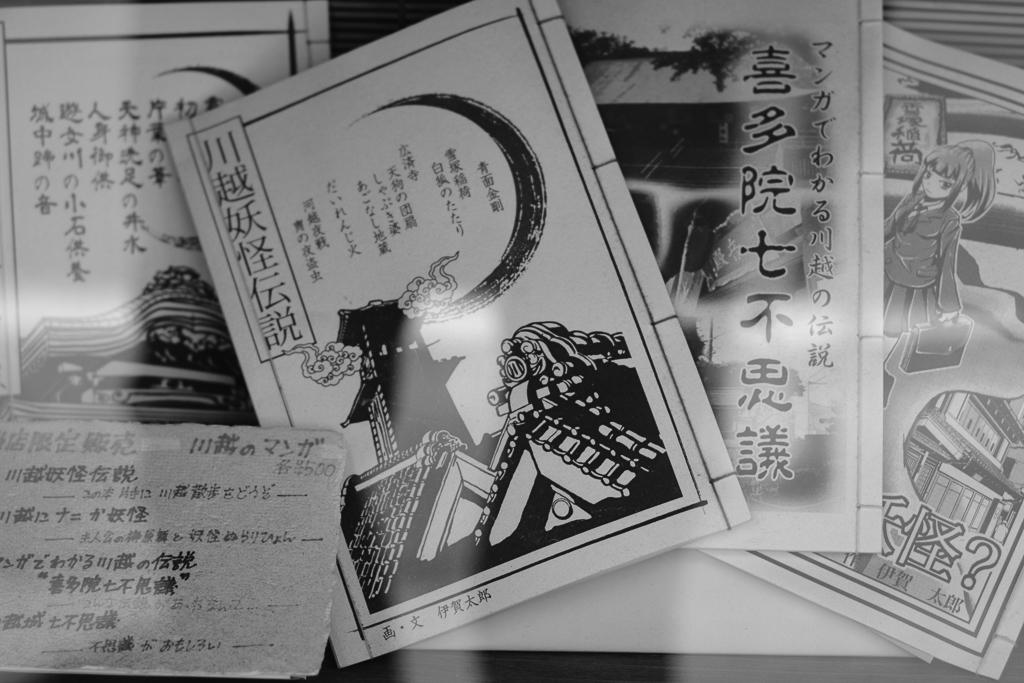 初
片葉の葦
天神洗足の井水
人身御供
遊女川の小石供養
城中蹄の音
川越妖怪伝説
青面金剛
雪塚稲荷
白狐のたたり
広済寺
天狗の団扇
しゃぶき婆
あごなし地蔵
だいれんじ火
河越夜戦
霄の夜盗虫
画・文 伊賀太郎
マンガでわかる川越の伝説
喜多院七不思議
雪塚稲荷
妖怪?
伊賀 太郎
店限定販売 川越のマンガ
各500
川越妖怪伝説
この本片手に 川越散歩をどうぞ
川越にナニか妖怪
と 妖怪ぬらりひょん
マンガでわかる川越の伝説
"喜多院七不思議"
越城七不思議
不思議がおもしろい